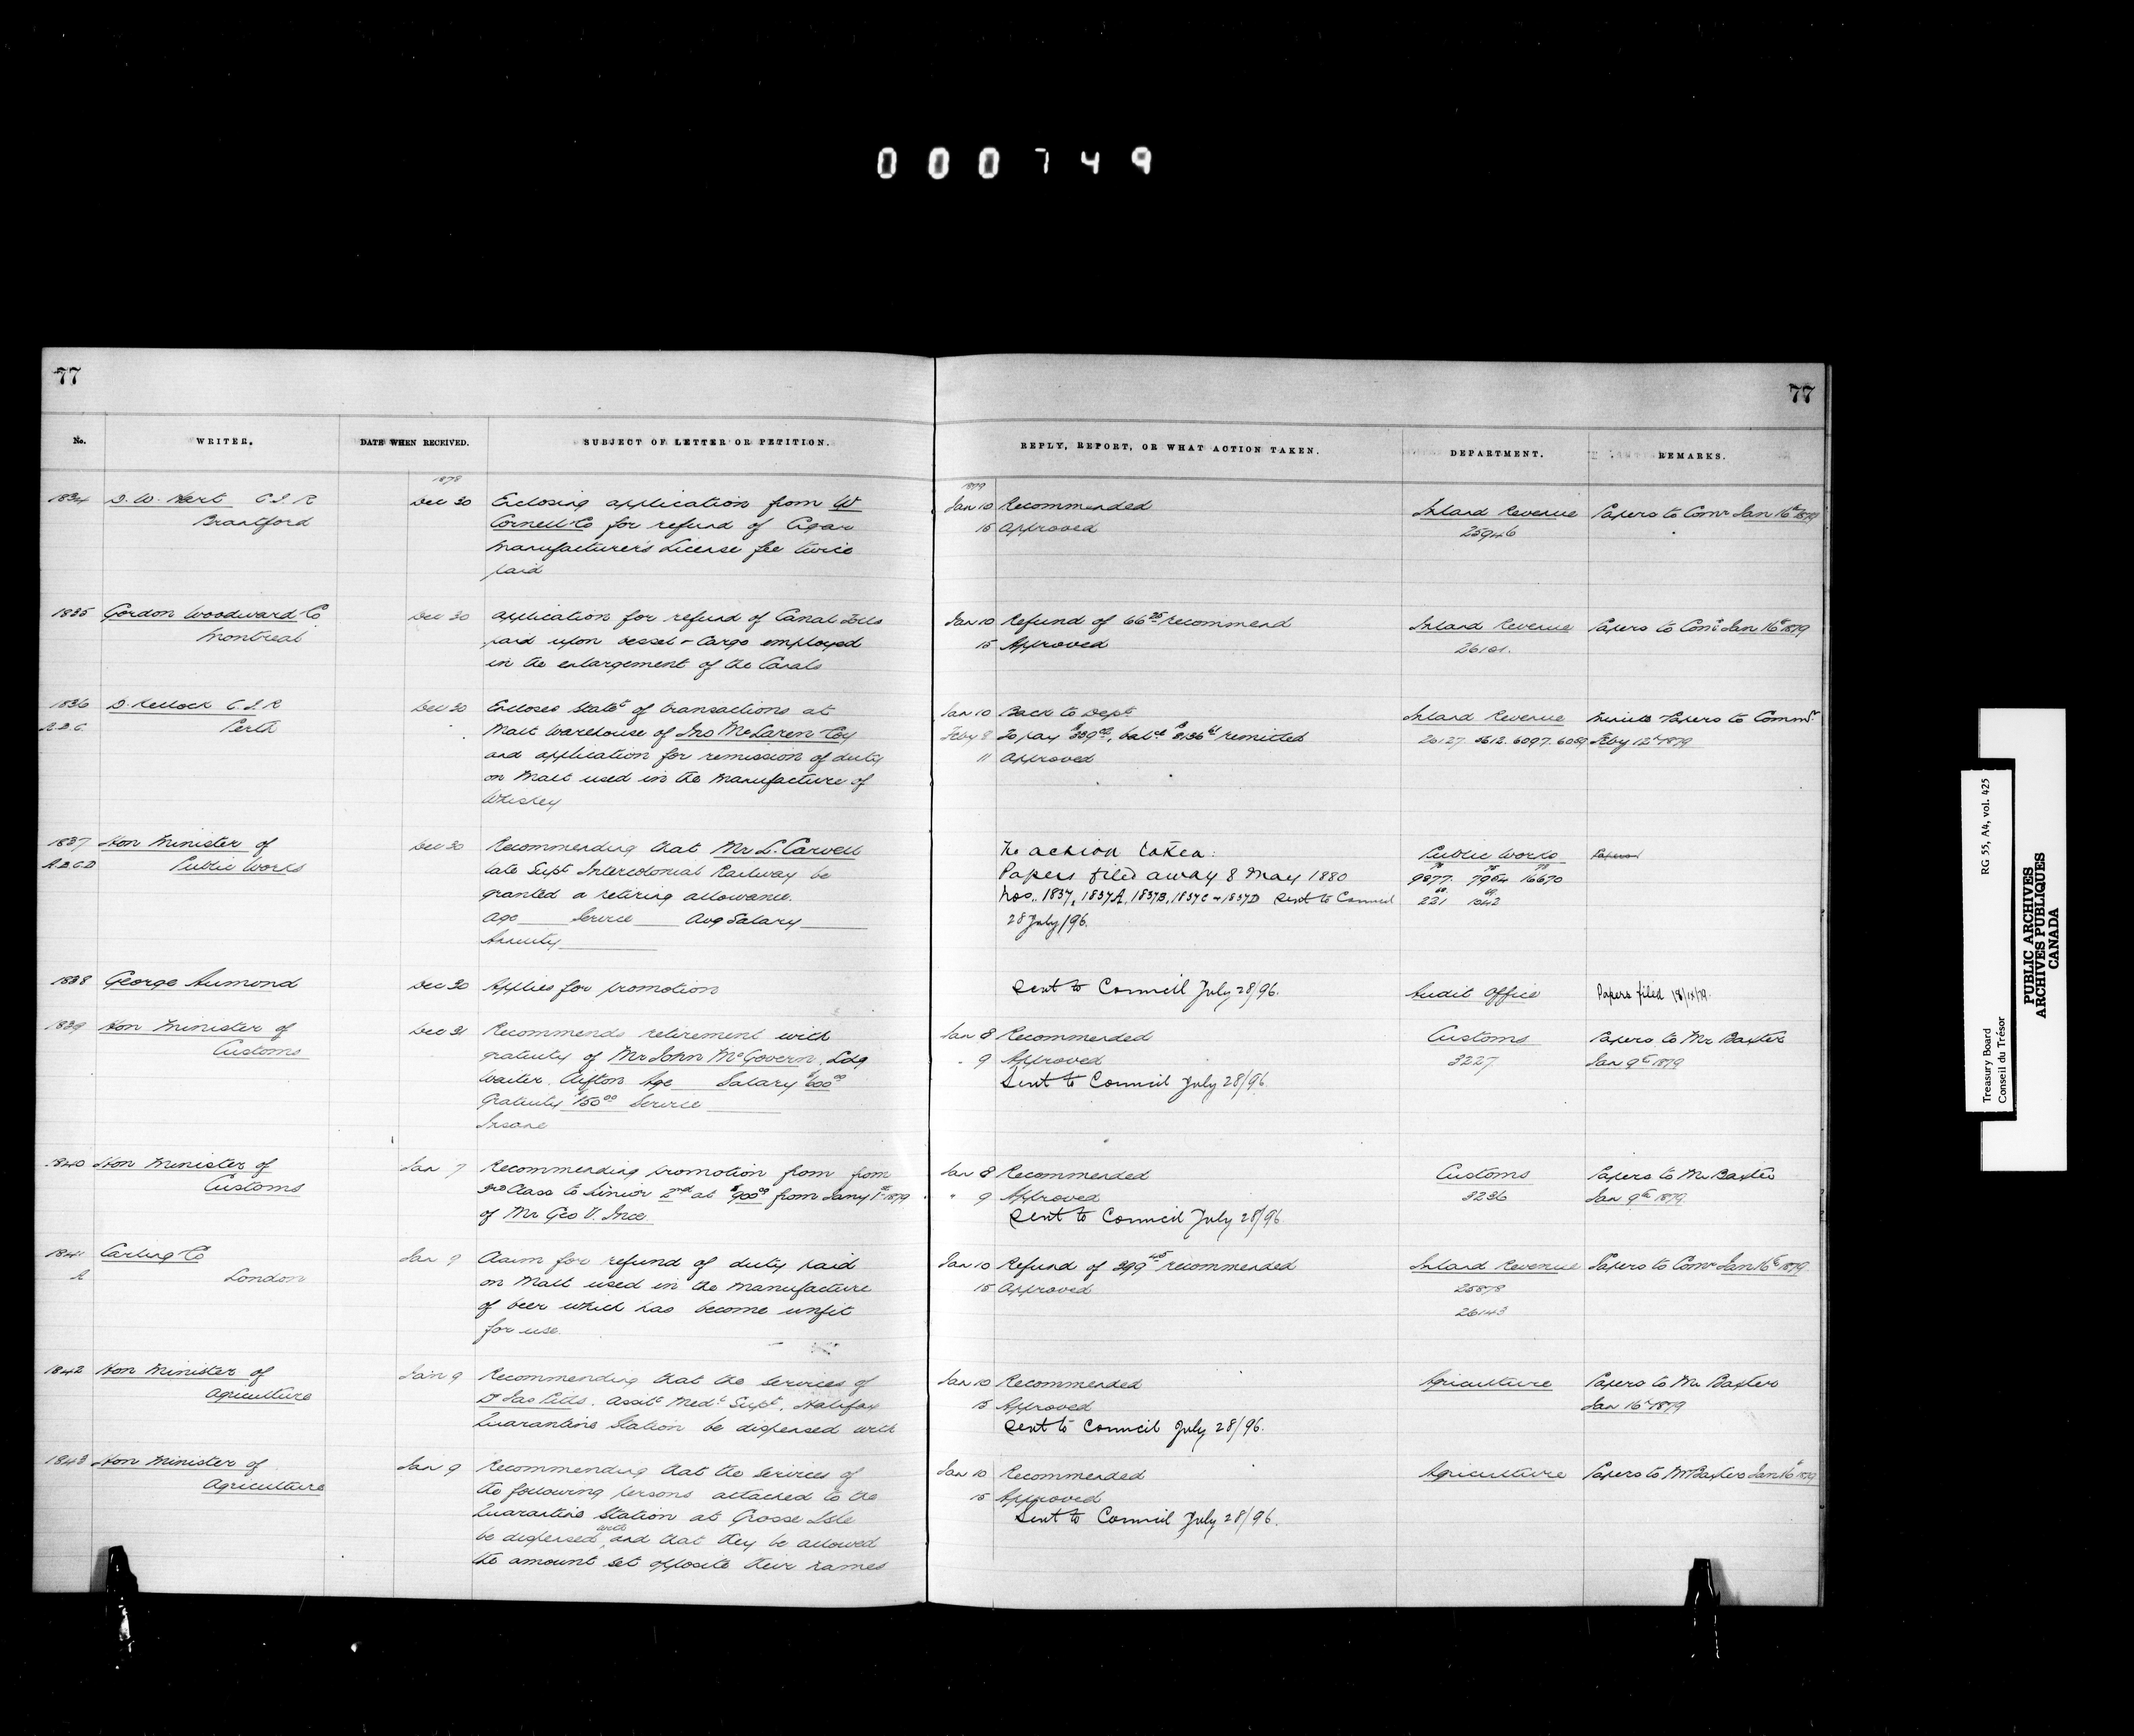 000749
77
77
No.
WRITER.
DATE WHEN RECEIVED.
SUBJECT OF LETTER OR PETITION.
REPLY, REPORT, OR WHAT ACTION TAKEN.
DEPARTMENT.
REMARKS.
1878
1879
1834 D. W. Kert C.I.R Dec 30 Enclosing application from W Jan 10 Recommended Inland Revenue Papers to Comr Jan 16th 1879
Brantford Cornell & Co for refund of Cigar 15 Approved 25946
Manufacturer's License fee twice
paid
1835 Gordon Woodward & Co Dec 30 Application for refund of Canal Tolls Jan 10 Refund of 66 25 recommend Inland Revenue Papers to Comr Jan 16th 1879
Montreal paid upon vessel & Cargo employed 15 Approved 26161.
in the enlargement of the Canals
1836 D. Kellock C.I.R Dec 30 Encloses Statt of transactions at Jan 10 Back to Dept Inland Revenue Minute Papers to Commr
A.B.C. Perth Malt Warehouse of Jno McLaren & Coy Feby 8 To pay remitted 26127. 5612. 6097. 6089 Feby 12th 1879
and application for remission of duty 11 Approved
on Malt used in the manufacture of
Whiskey
1837 Hon Minister of Dec 30 Recommending that Mr L. Carvell No action taken. Public Works Papers
A.B.C.D Public Works late Supt Intercolonial Railway be Papers filed away 8 May 1880 9877. 7954 16670
granted a retiring allowance. Nos. 1837, 1837A, 1837B, 1837C & 1837D Sent to Council 221 1042
Age Service Avg Salary 28 July/96.
Annuity
1838 George Aumond Dec 30 Applies for promotion Sent to Council July 28/96. Audit Office Papers filed
1839 Hon Minister of Dec 31 Recommends retirement with Jan 8 Recommended Customs Papers to Mr Baxter
Customs gratuity of Mr John McGovern, Ldg " 9 Approved 3227 Jan 9th 1879
Waiter. Clifton Age Salary $600 00 Sent to Council July 28/96.
Gratuity $150 00 Service
Insane
1840 Hon Minister of Jan 7 Recommending promotion from from Jan 8 Recommended Customs Papers to Mr Baxter
Customs 3rd Class to Senior 2nd at $900 00 from Jany 1st 1879 " 9 Approved 3236 Jan 9th 1879.
of Mr Geo V. Ince. Sent to Council July 28/96
1841 Carling & Co Jan 9 Claim for refund of duty paid Jan 10 Refund of 399 45 recommended Inland Revenue Papers to Comr Jan 16th 1879.
A London on Malt used in the manufacture 15 Approved 25878
of beer which has become unfit 26143
for use.
1842 Hon Minister of Jan 9 Recommending that the services of Jan 10 Recommended Agriculture Papers to Mr Baxter
Agriculture Dr Jas Pitts. Assit Medl Supt. Halifax 15 Approved Jan 16th 1879
Quarantine Station be dispensed with Sent to Council July 28/96.
1843 Hon Minister of Jan 9 Recommending that the services of Jan 10 Recommended Agriculture Papers to Mr Baxter Jan 16th 1879
Agriculture the following persons attached to the 15 Approved
Quarantine Station at Grosse Isle Sent to Council July 28/96.
be dispensed with and that they be allowed
the amount set opposite their names
RG 55, A4, vol. 425
Treasury Board
Conseil du Trésor
PUBLIC ARCHIVES
ARCHIVES PUBLIQUES
CANADA